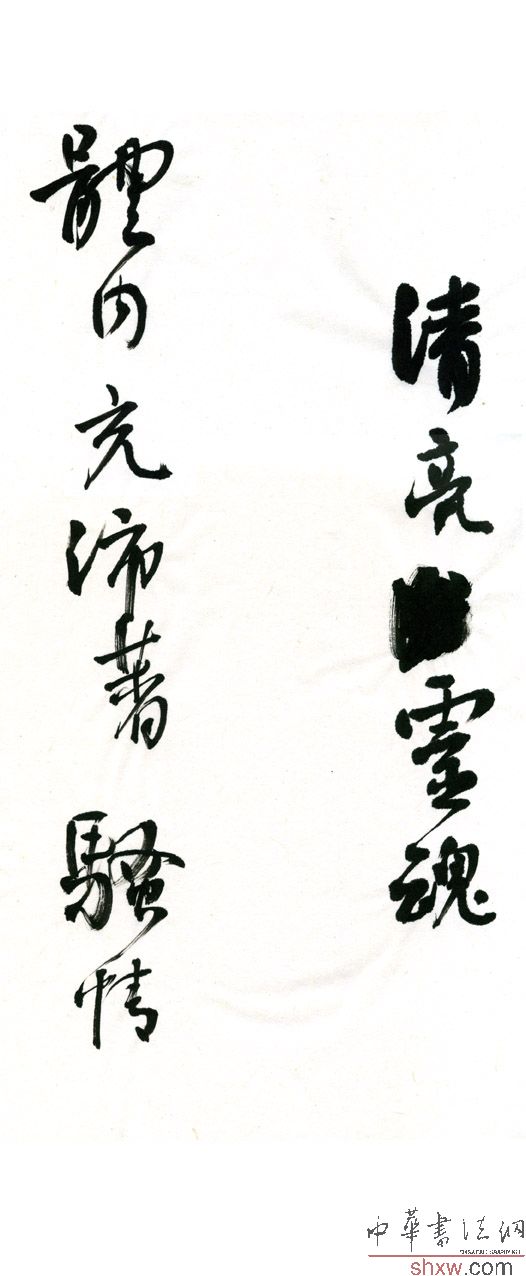 清亮靈魂
體内充沛著騷情
中華書法網
shxw.com